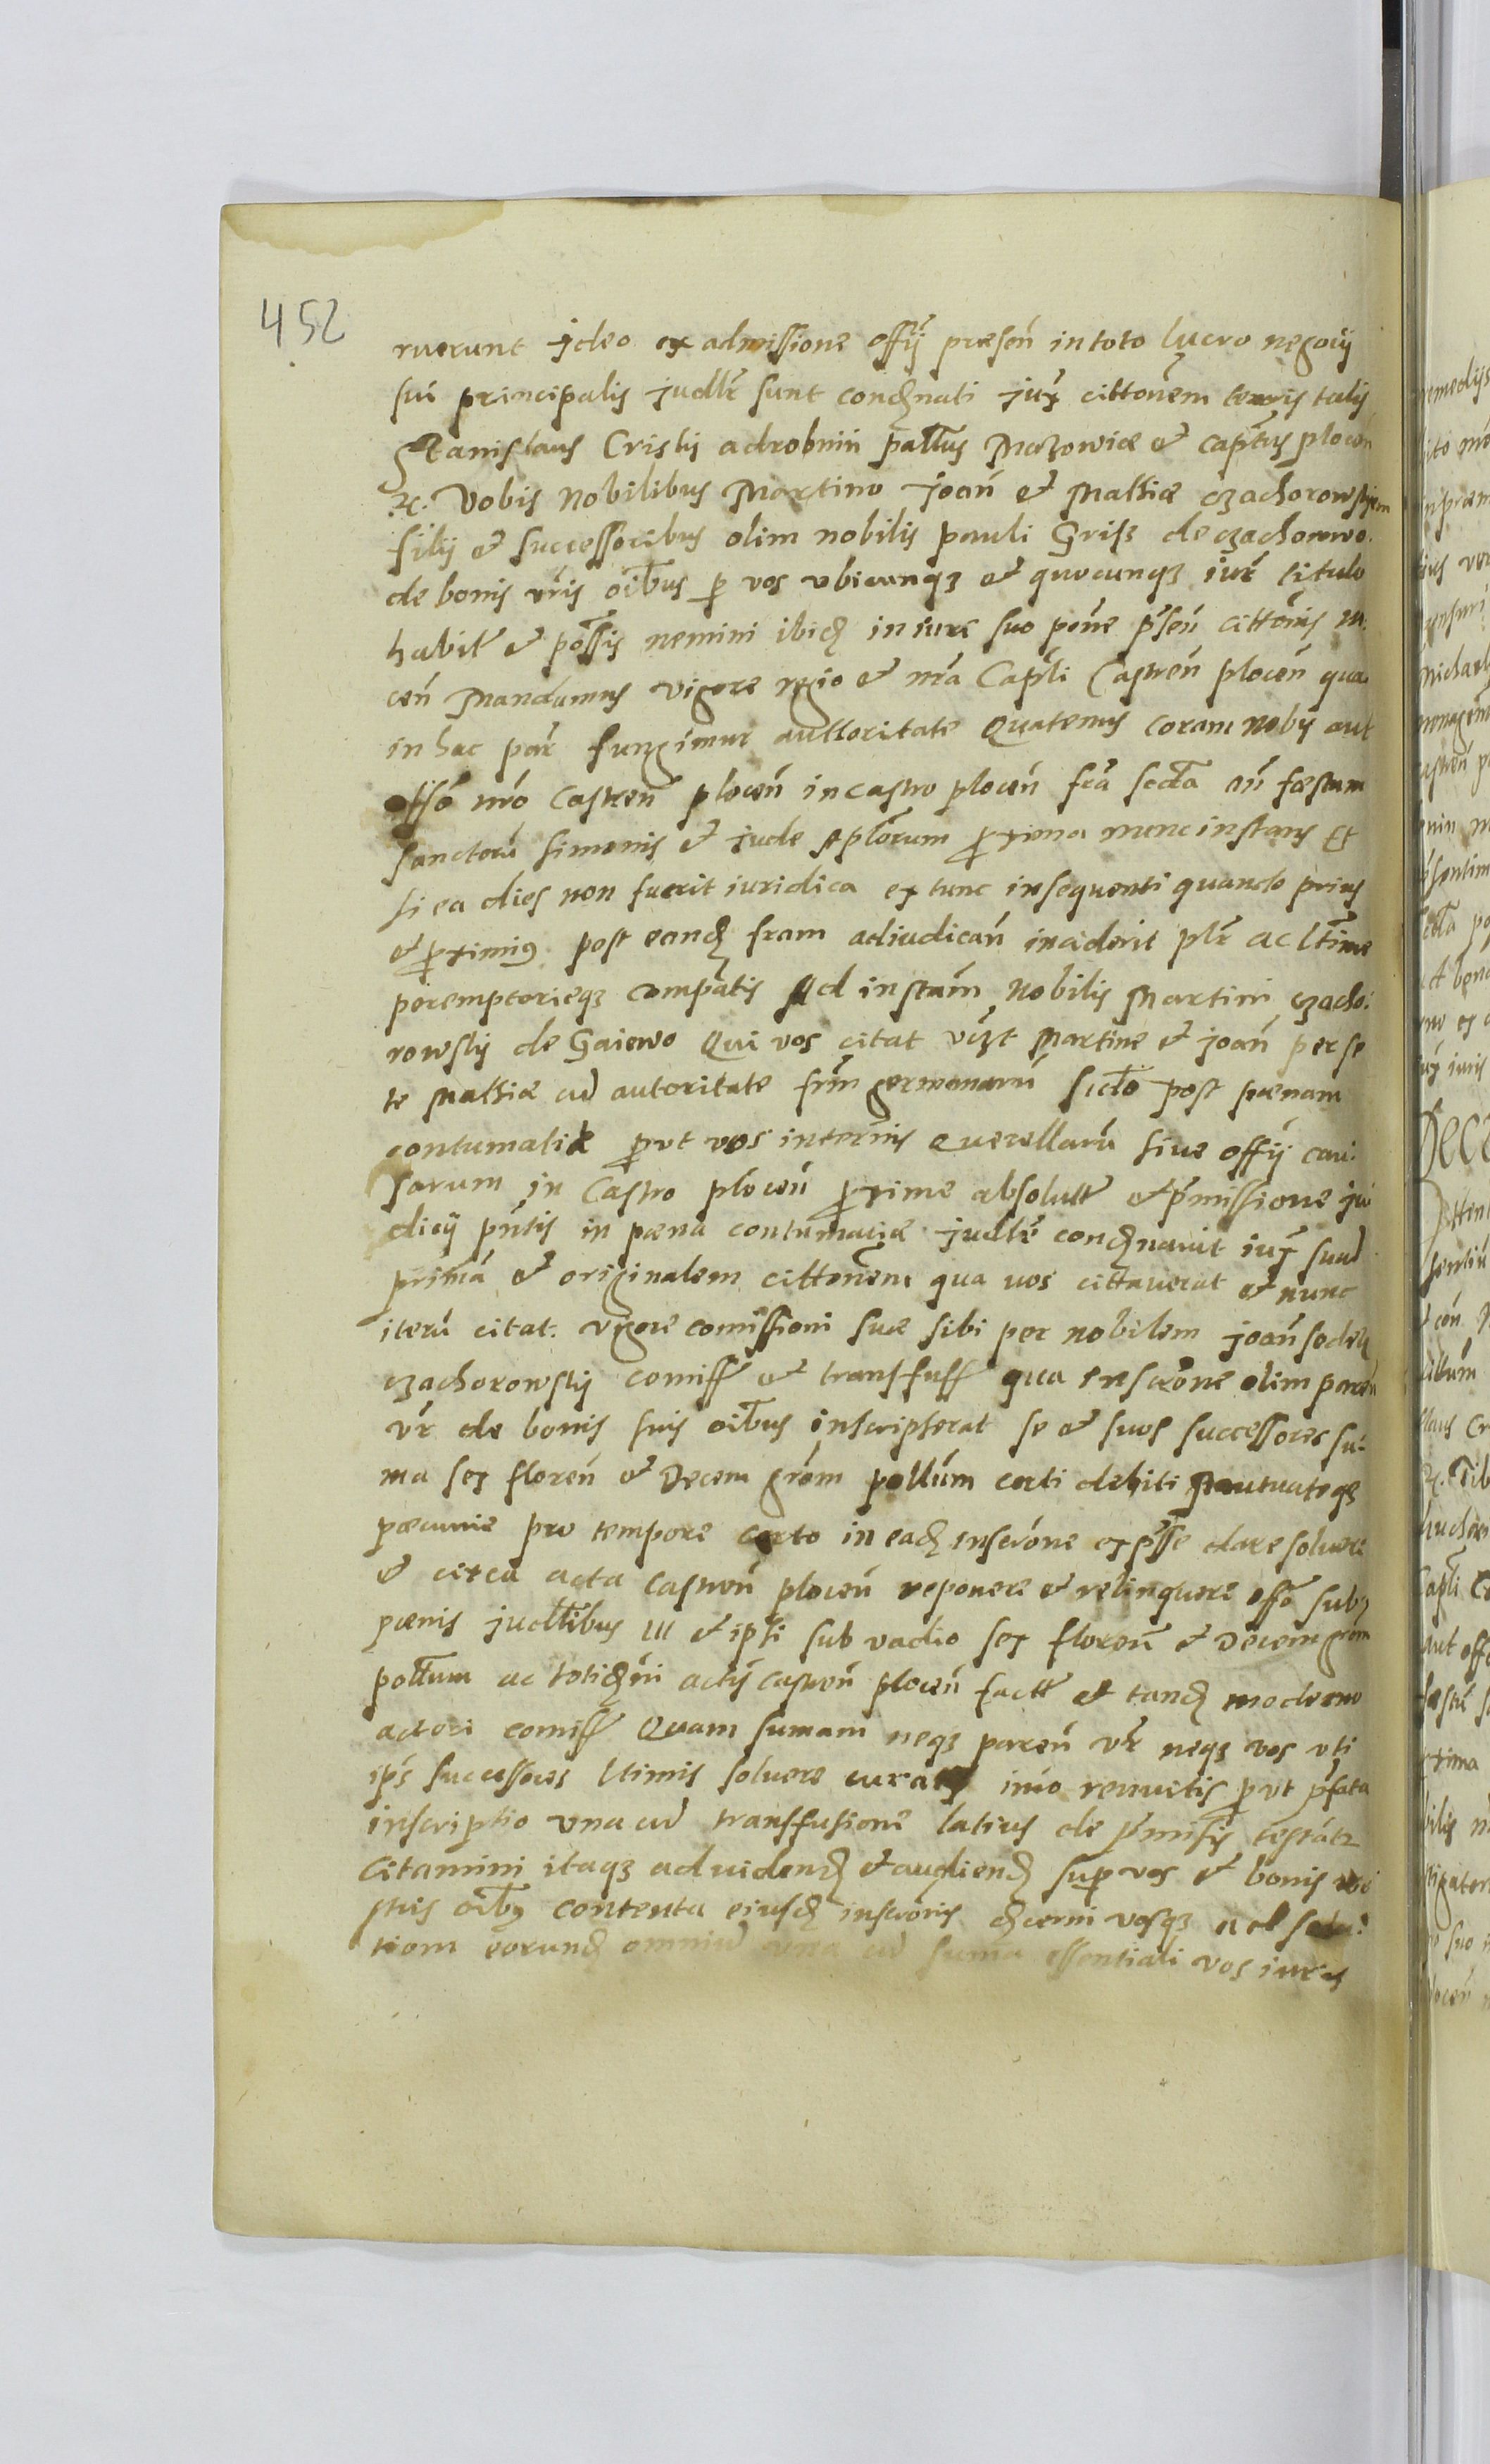 452
ruerunt jdeo ex admissione offy presen in toto lucro negocy
sui principalis judlr sunt condnati jux cittonem tenoris talis
Stanislaus Criski a drobnin pallus Mazowiæ et Capteus plocen
etc. Vobis Nobilibus Martino joan et Mathiæ czachorowskiem
filÿ et successoribus olim nobilis pauli Grisz de czachorowo
de bonis vris oibus p vos vbicunq3 et quocunq3 iur titulo
habit et possis nemini ibid in iure suo pone psen cittonis
cen Mandamus vigore regio et nra Capli Castren plocen qua
in hac par fungimur auttoritate Quatenus coram nobis aut
offo nro Castren plocen in castro plocen fra secda an festum
sanctoru simonis et jude Aplorum pxima nunc instans Et
si ea dies non fuerit iuridica ex tunc insequenti quando prius
et pximius post eand fram adiudican inciderit plr ac ltime
peremptorieq3 compatis Ad instam Nobilis Martini czacho:
rowsky de Gaiewo Qui vos citat vizt Martine et joan per se
te Mathia cu autoritate frm germanaru sicto post pænam
contumatiæ pvt vos in terminis Querellaru siue offy cau:
sarum in Castro plocen pxime absolutt et pmissione ju
dicy pntis in pæna contumatiæ judlr condnauit iux suad
prima et originalem cittonem qua uos cittauerat et nunc
iteru citat. vigore comissioni suæ sibi per nobilem joan
czachorowsky comiss et transfuss qua inscrone olim paren
vr de bonis suis oibus inscripserat se et suos successores su:
ma sex floren et Decem grom pollum certi debiti Mutuateq3
pæcunie pro tempore certo in ead inscrone expsse dare soluere
et circa acta Castren plocen reponere et relinquere offo sub
pænis judlibus III et ipsi sub vadio sex floren et Decem grom
pollum ac totidmi actis castren plocen factt et tand moderno
actori comiss Quam sumam neq3 paren vr neq3 vos vti
ips successores ltimis soluere curatis imo renuetis pvt pfata
inscriptio vna cu transfusione latius de pmissis testatr
Citamini itaq3 ad uidend et audiend sup vos et bonis ve
stris oibus contenta eiusd inscronis dcerni vosq3 ad solu:
tiom eorund omniu vna cu suma essentiali vos iuris